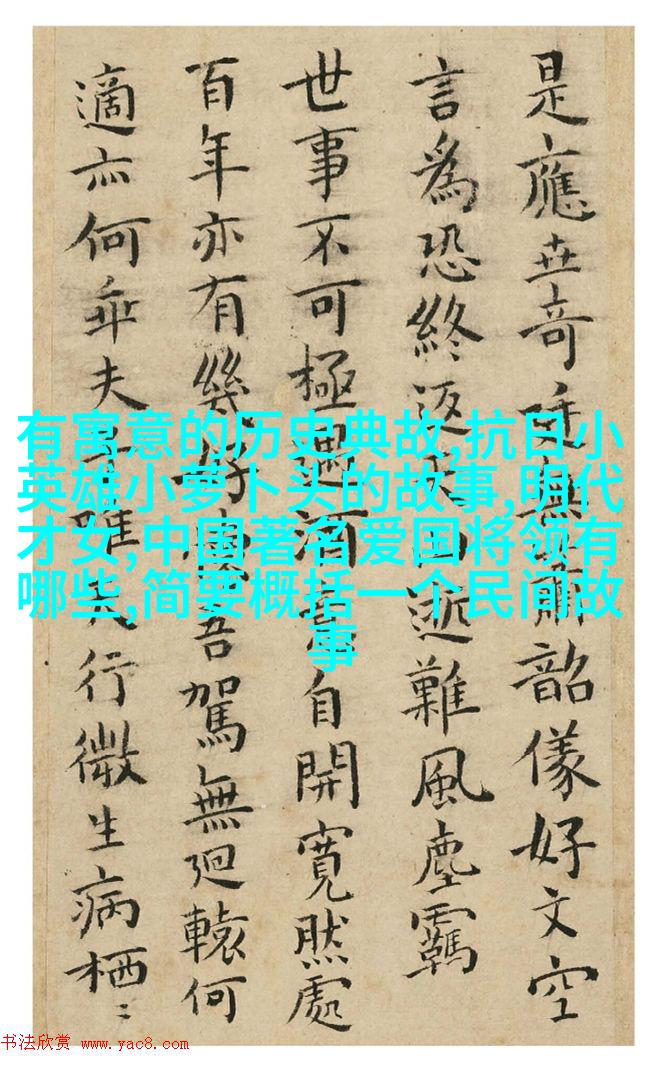 是應世奇無韶儀好文空
言為恐終返逝難風塵羈
世事不可極遇酒自開寬然處
百年亦有幾好吾駕無迴轅何
適亦何乖夫子唯行微生病栖〻
有寓意的历史典故,抗日小
英雄小萝卜头的故事,明代
才女,中国著名爱国将领有
哪些,简要概括一个民间故
事
书法欣赏 www.yac8.com